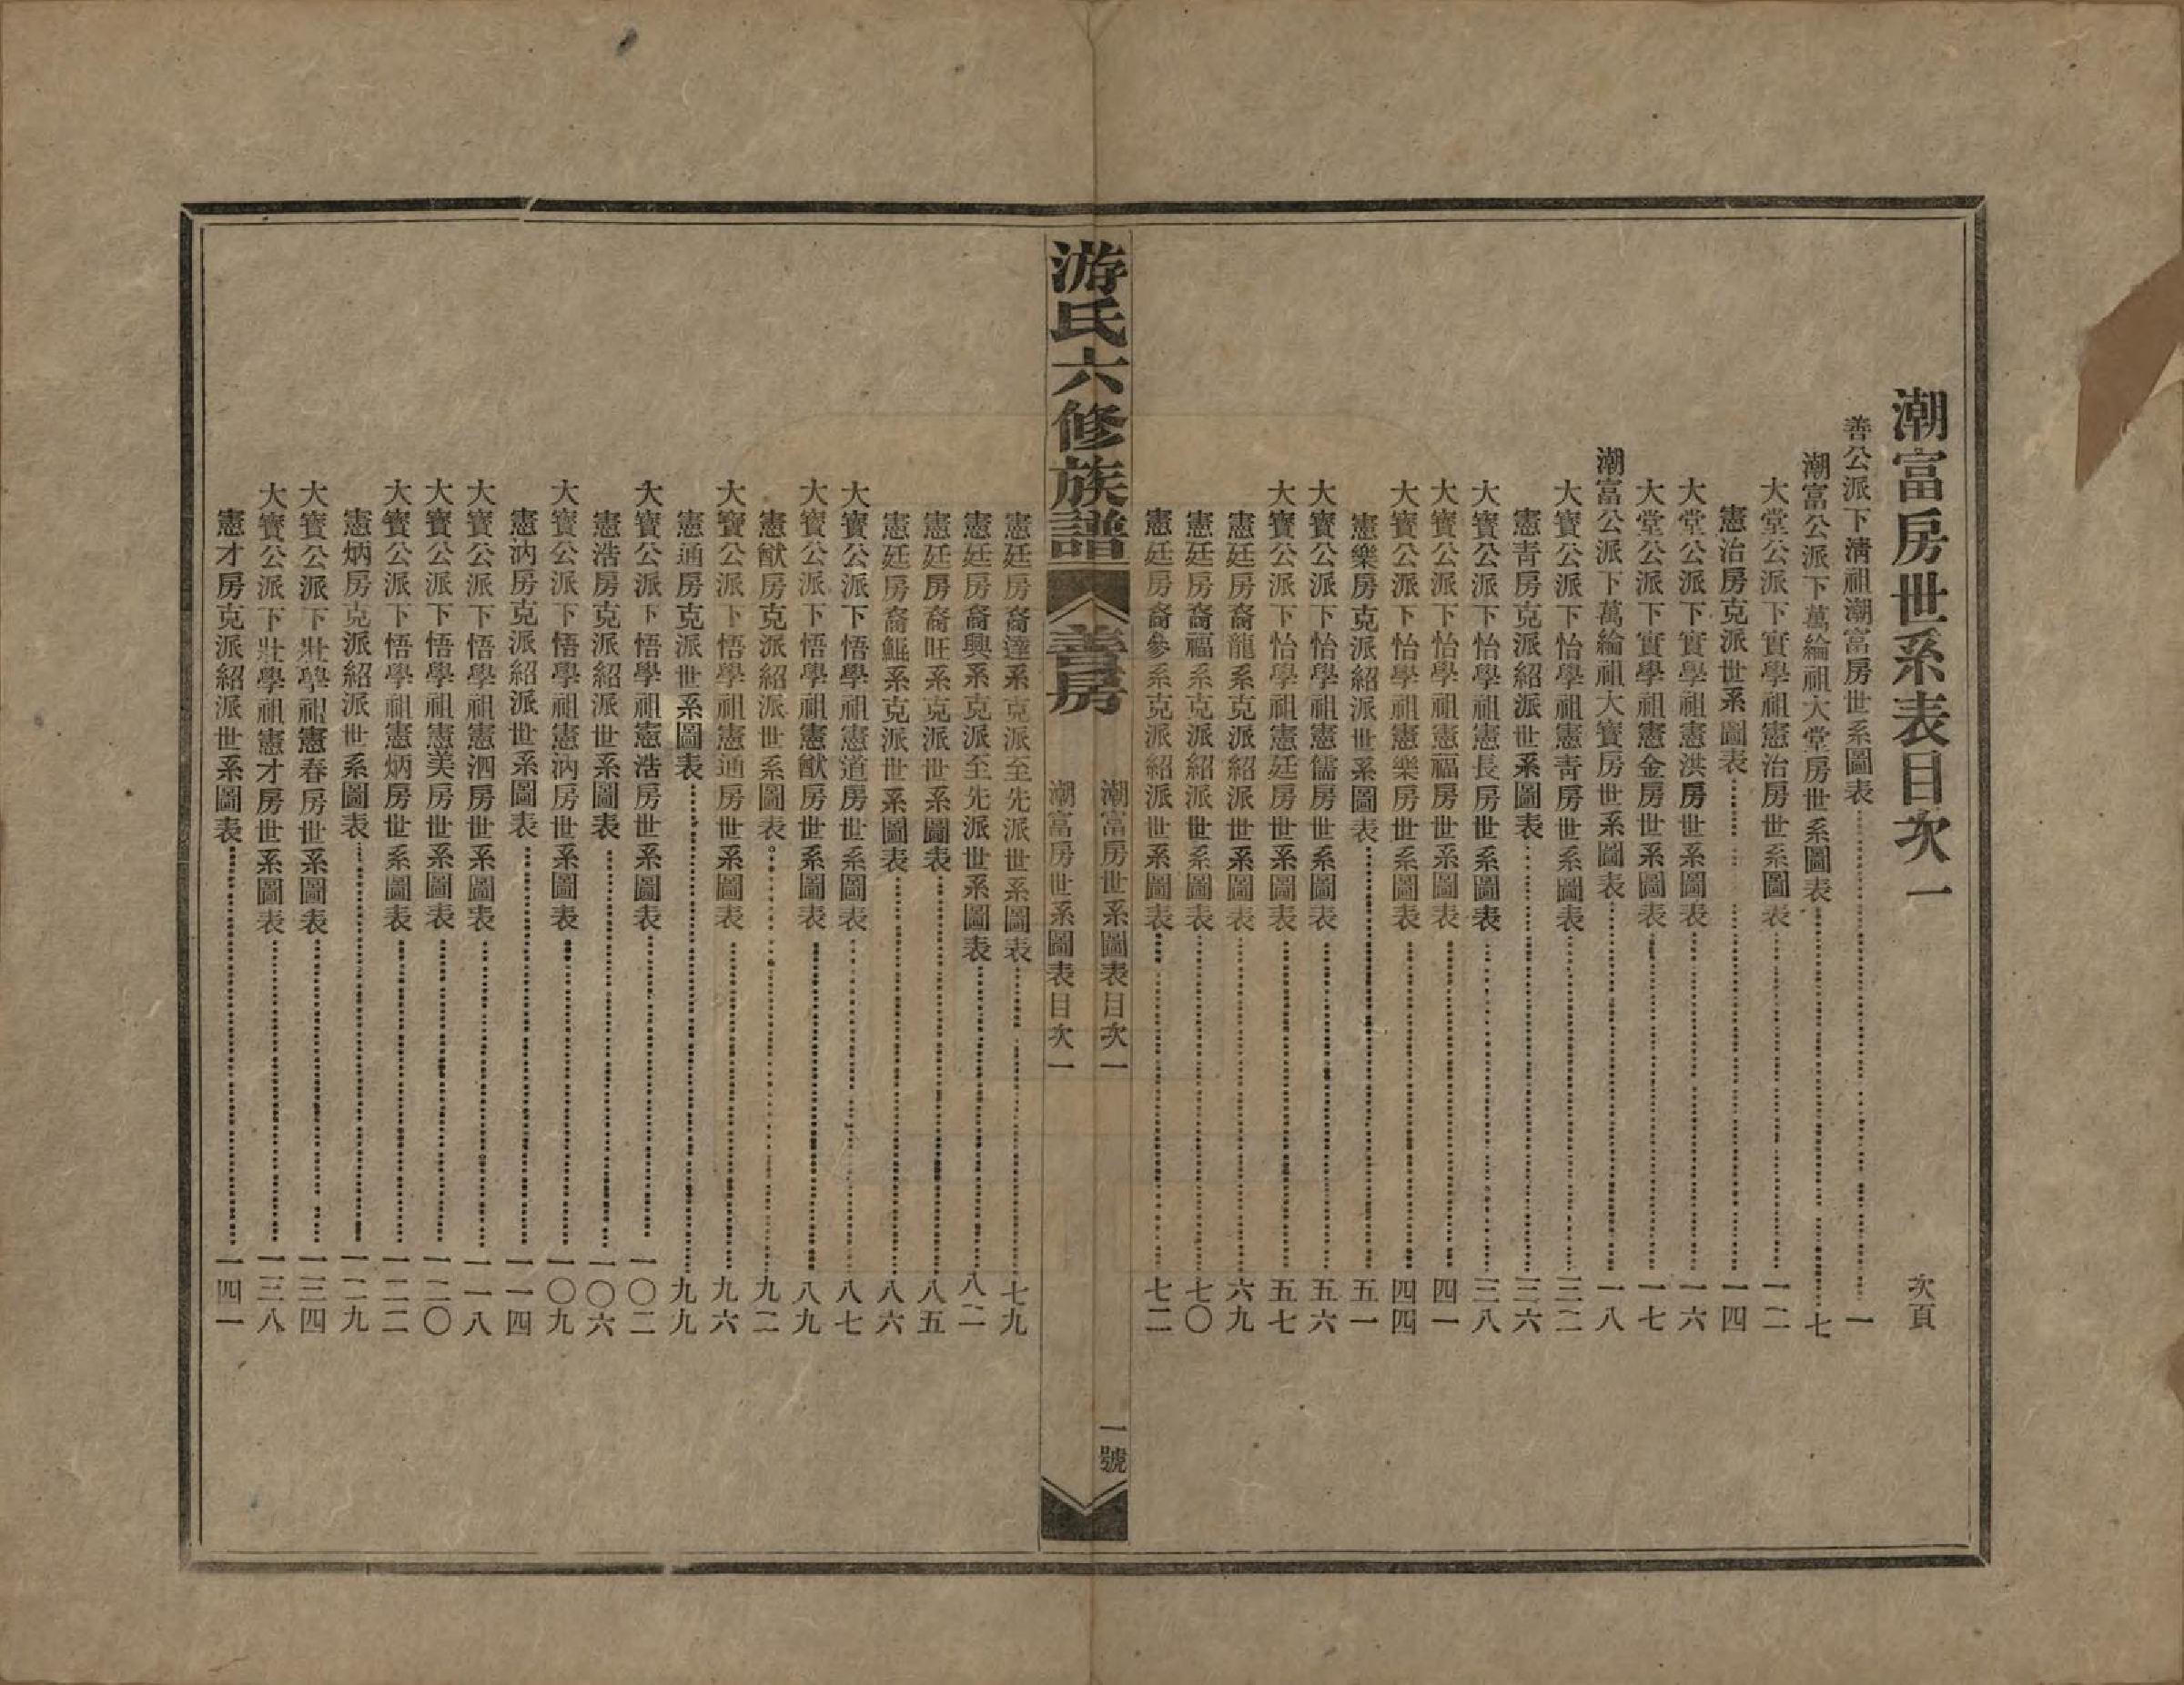 潮富房世系表目次一　次頁
善公派下淸祖潮富房世系圖表……一
潮富公派下萬綸祖大堂房世系圖表……七
大堂公派下實學祖憲治房世系圖表……一二
憲治房克派世系圖表……一四
大堂公派下實學祖憲洪房世系圖表……一六
大堂公派下實學祖憲金房世系圖表……一七
潮富公派下萬綸祖大寶房世系圖表……一八
大寶公派下怡學祖憲靑房世系圖表……三二
憲靑房克派紹派世系圖表……三六
大寶公派下怡學祖憲長房世系圖表……三八
大寶公派下怡學祖憲福房世系圖表……四一
大寶公派下怡學祖憲樂房世系圖表……四四
憲樂房克派紹派世系圖表……五一
大寶公派下怡學祖憲儒房世系圖表……五六
大寶公派下怡學祖憲廷房世系圖表……五七
憲廷房裔龍系克派紹派世系圖表……六九
憲廷房裔福系克派紹派世系圖表……七〇
憲廷房裔參系克派紹派世系圖表……七二
游氏六修族譜　善房
潮富房世系圖表目次一　一號
潮富房世系圖表目次一
憲廷房裔達系克派至先派世系圖表……七九
憲廷房裔興系克派至先派世系圖表……八二
憲廷房裔旺系克派世系圖表……八五
憲廷房裔鯤系克派世系圖表……八六
大寶公派下悟學祖憲道房世系圖表……八七
大寶公派下悟學祖憲猷房世系圖表……八九
憲猷房克派紹派世系圖表……九二
大寶公派下悟學祖憲通房世系圖表……九六
憲通房克派世系圖表……九九
大寶公派下悟學祖憲浩房世系圖表……一〇二
憲浩房克派紹派世系圖表……一〇六
大寶公派下悟學祖憲汭房世系圖表……一〇九
憲汭房克派紹派世系圖表……一一四
大寶公派下悟學祖憲泗房世系圖表……一一八
大寶公派下悟學祖憲美房世系圖表……一二〇
大寶公派下悟學祖憲炳房世系圖表……一二二
憲炳房克派紹派世系圖表……一二九
大寶公派下壯學祖憲春房世系圖表……一三四
大寶公派下壯學祖憲才房世系圖表……一三八
憲才房克派紹派世系圖表……一四一